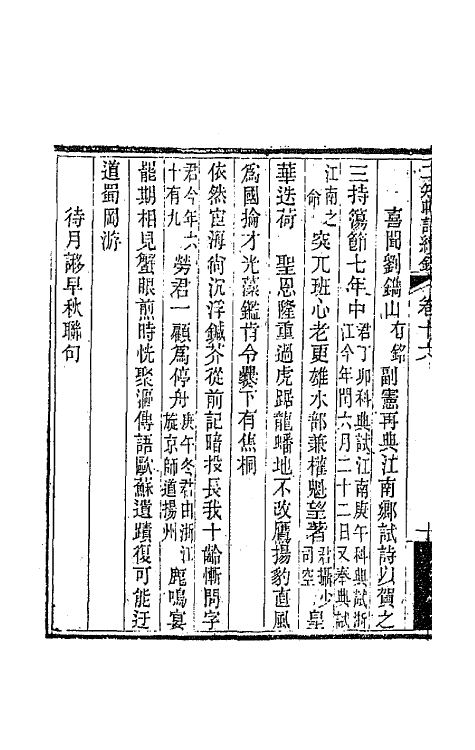 卷十六
喜聞劉鐫山有銘副憲再典江南鄉試詩以賀之
三持蕩節七年中君丁卯科典試江南庚午科典試浙江今年閏六月二十二日又奉典試
江南之命突兀班心老更雄水部兼權魁望著君攝少司空皇
華迭荷 聖恩隆重過虎踞龍蟠地不改鷹揚豹直風
爲國掄才光藻鑑肯令爨下有焦桐
依然宦海徜沉浮鍼芥從前記暗投長我十齡慚問字
君今年六十有九勞君一顧爲停舟庚午冬君由浙江旋京師道揚州鹿鳴宴
罷期相見蟹眼煎時恍聚漚傳語歐蘇遺蹟復可能迂
道蜀岡游
待月謻早秋聯句